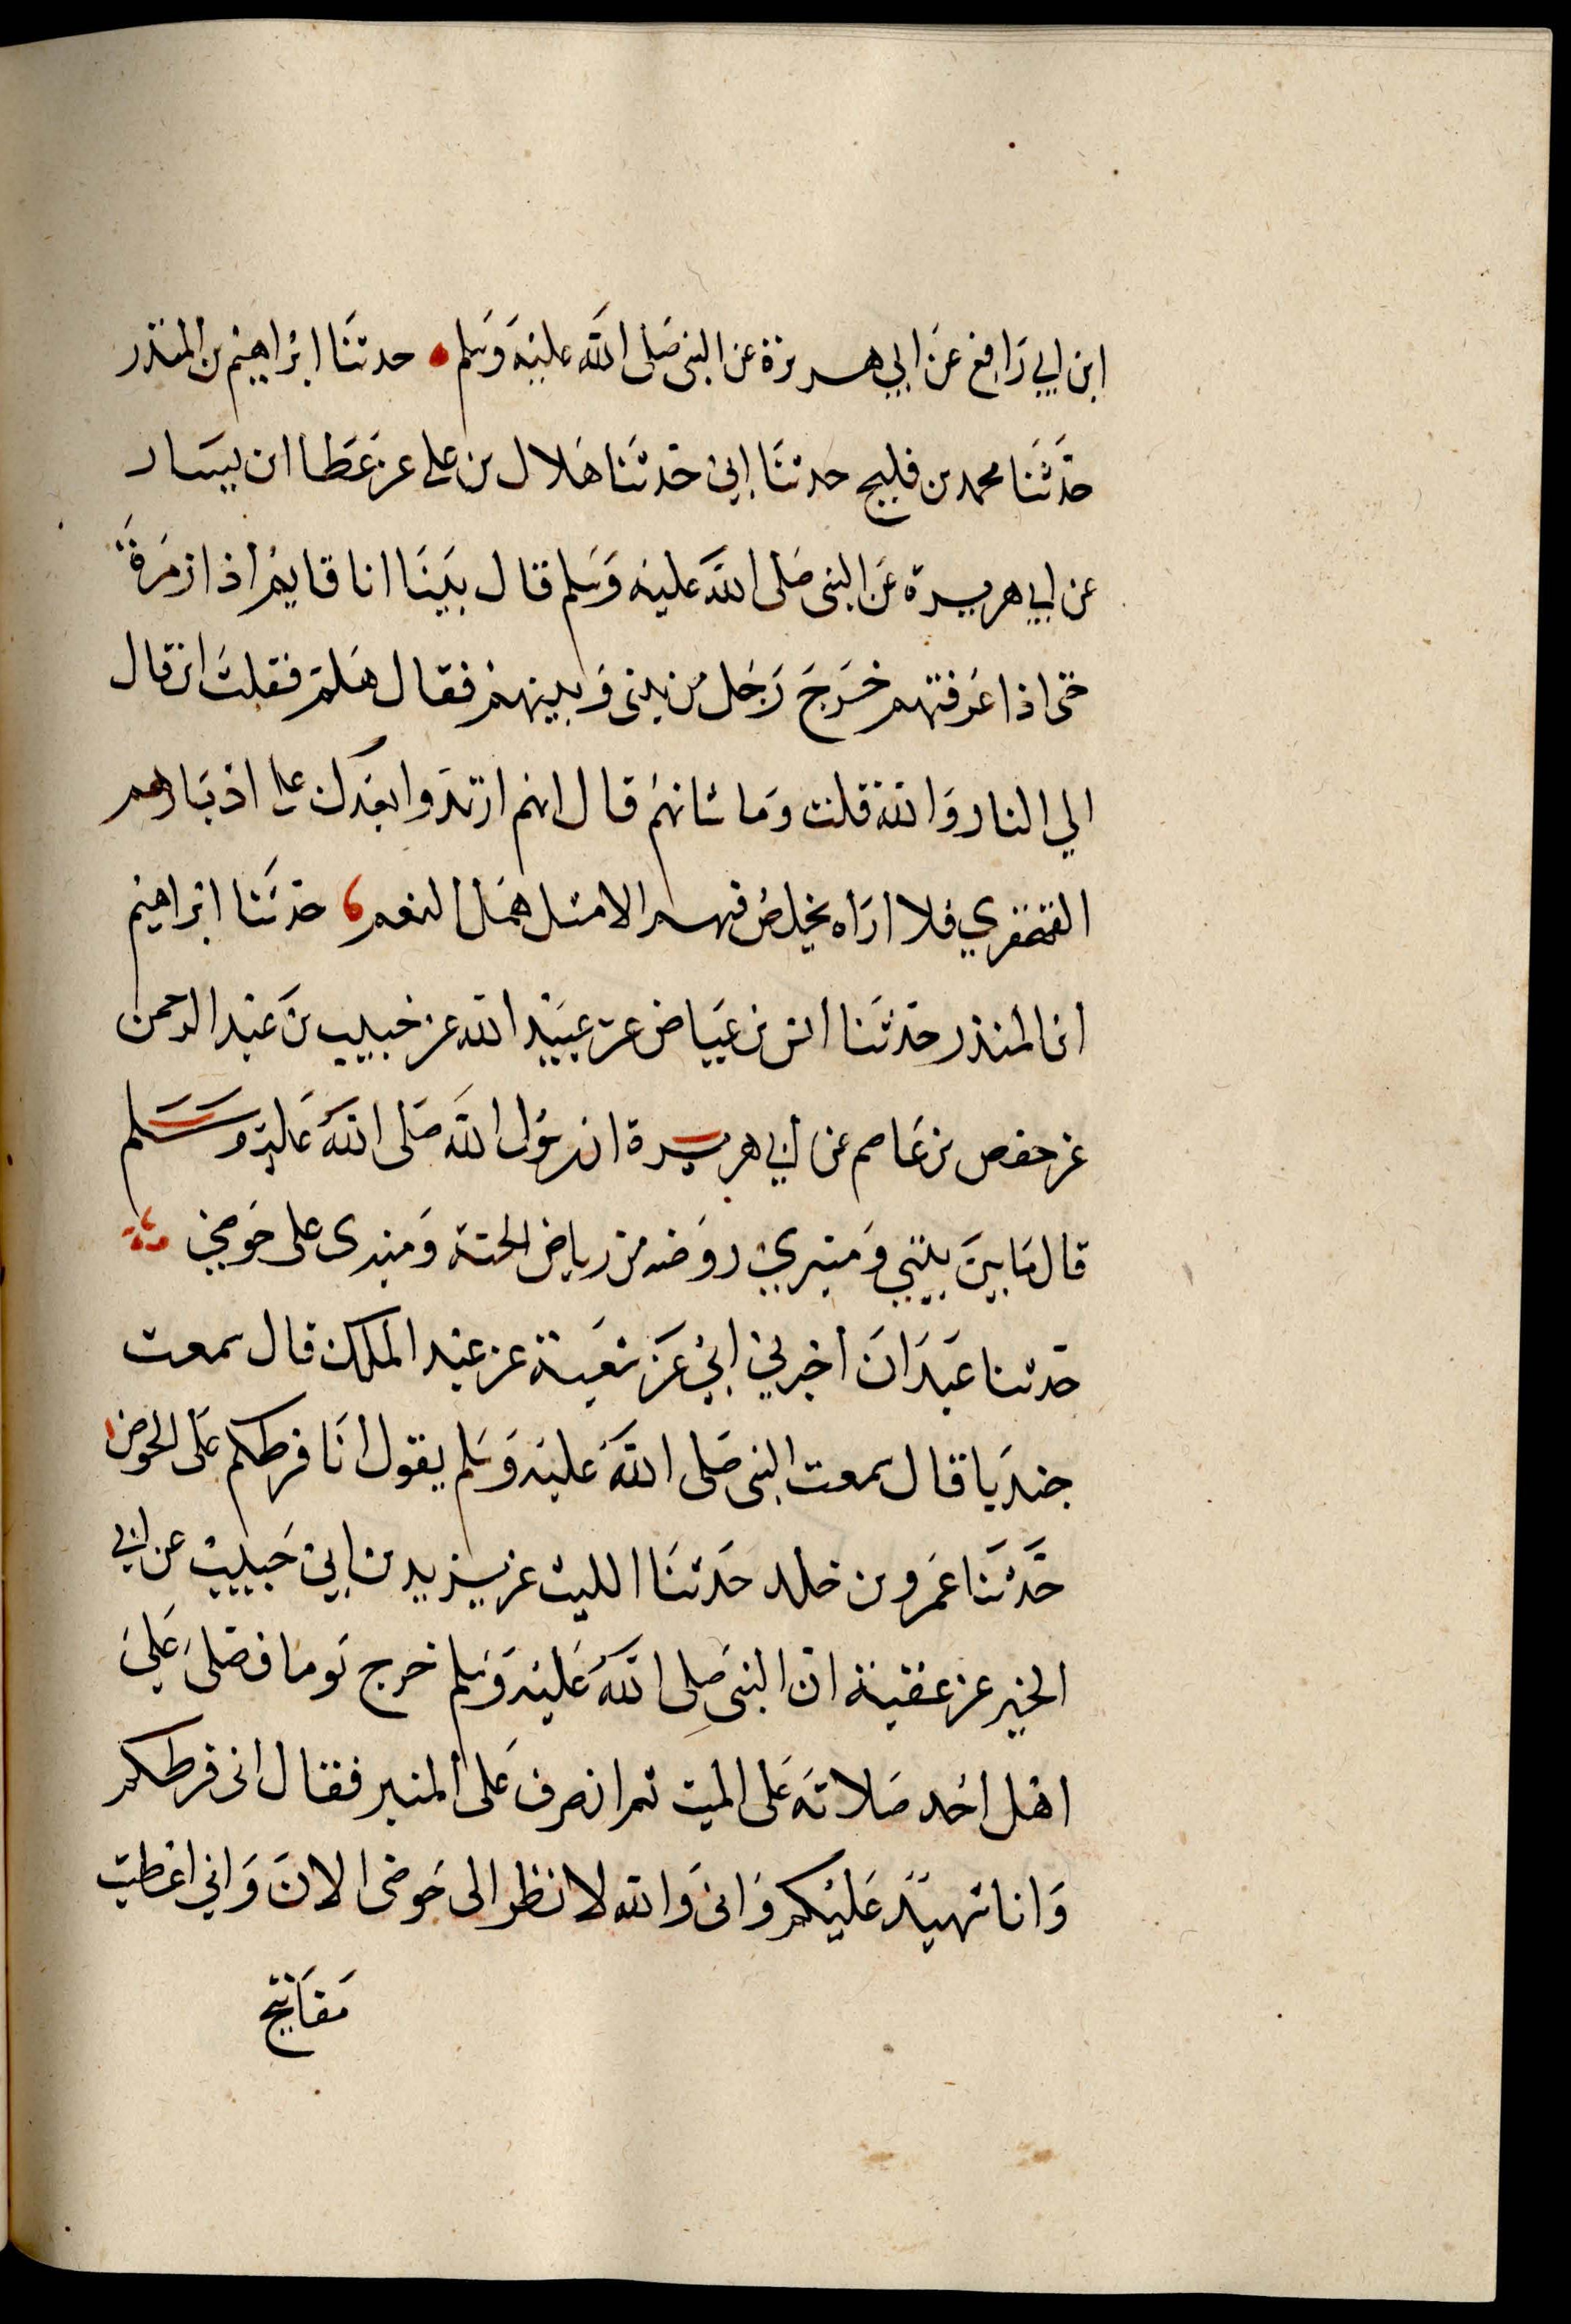 ابن ابي رافع عن ابي هريرة عن النبي صلى الله عليه وسلم حدثنا ابراهيم بن المنذر
حدثنا محمد بن فليح حدثنا ابي حدثنا هلال بن علي عن عطا ابن يسار
عن ابي هريرة عن النبي صلى الله عليه وسلم قال بينا انا قايم اذا زمرة
حتى اذا عرفتهم خرج رجل من بيني وبينهم فقال هلم فقلت اين قال
الي النار والله قلت وما شانهم قال انهم ارتدوا بعدك على ادبارهم
القهقري فلا اراه يخلص فيهم الا مثل همل النعم حدثنا ابراهيم
ابن المنذر حدثنا انس بن عياض عن عبيد الله عن خبيب بن عبد الرحمن
عن حفص بن عاصم عن ابي هريرة ان رسول الله صلى الله عليه وسلم
قال ما بين بيتي ومنبري روضه من رياض الجنة ومنبري على حوضي
حدثنا عبدان اخبرني ابي عن شعبة عن عبد الملك قال سمعت
جندبا قال سمعت النبي صلى الله عليه وسلم يقول انا فرطكم على الحوض
حدثنا عمرو بن خلد حدثنا الليث عن يزيد بن ابي حبيب عن ابي
الخير عن عقبة ان النبي صلى الله عليه وسلم خرج يوما فصلى علي
اهل احد صلاته على الميت ثم انصرف على المنبر فقال اني فرطكم
وانا شهيد عليكم واني والله لانظر الى حوضي الان واني اعطيت
مفاتيح